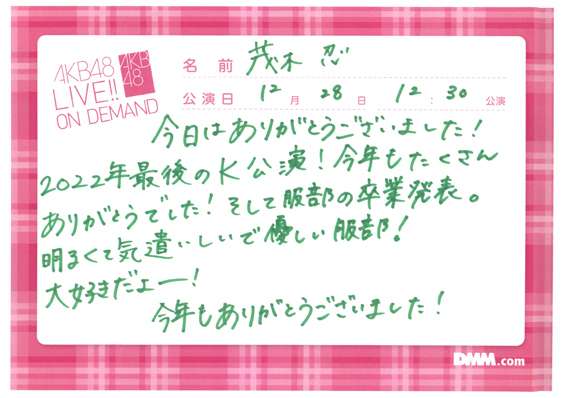 AKB48
LIVE!!
ON DEMAND
AKB
48
名前 茂木 忍
公演日 12月28日 12:30公演
今日はありがとうございました!
2022年最後のK公演!今年もたくさん
ありがとうでした!そして服部の卒業発表。
明るくて気遣いしいで優しい服部!
大好きだよー!
今年もありがとうございました!
DMM.com